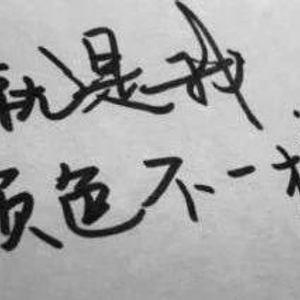 就是我
颜色不一样